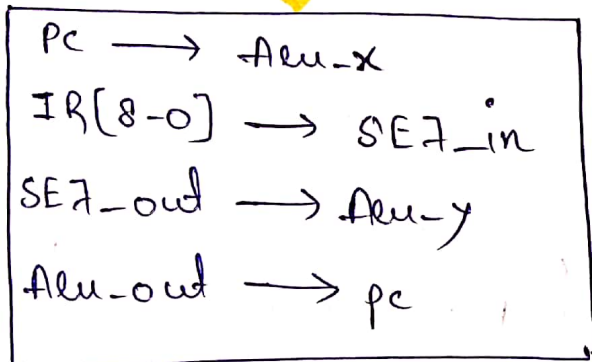 PC → Alu-x
IR[8-0] → SE7_in
SE7_out → Alu-y
Alu-out → pc